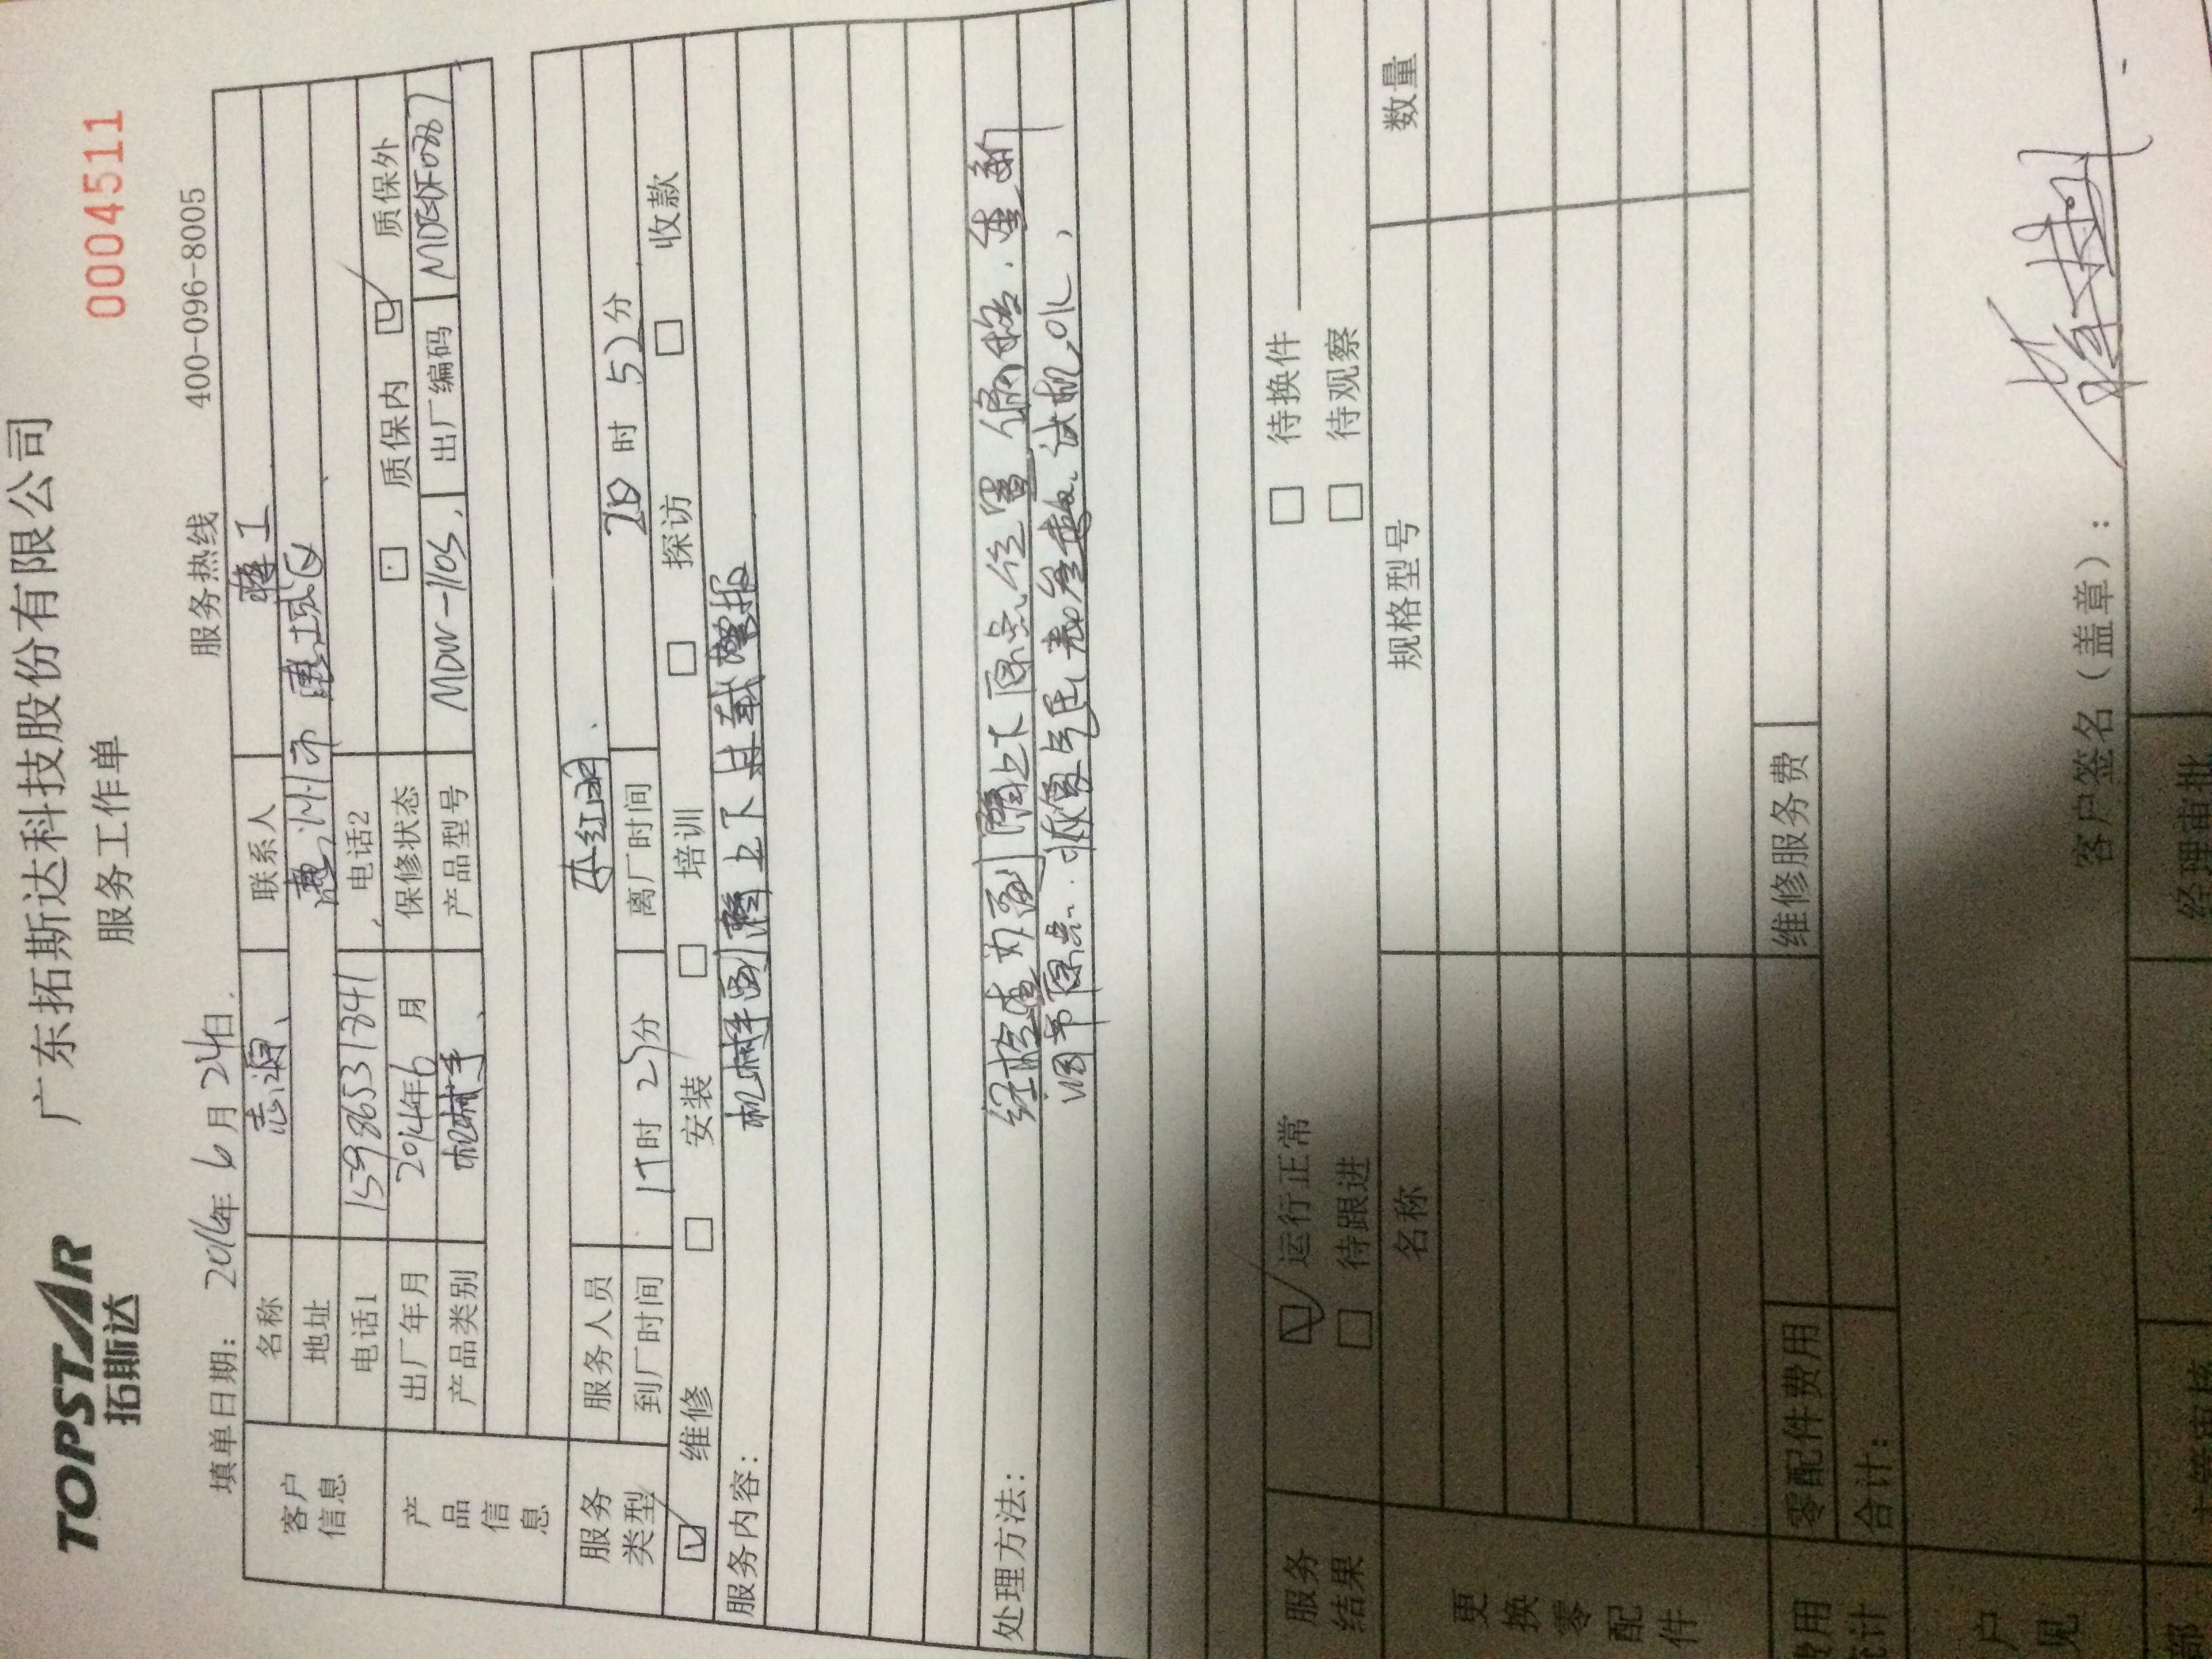 TOPSTAR
拓斯达
广东拓斯达科技股份有限公司
服务工作单
0004511
填单日期： 2016年 6月 24日
服务热线 400-096-8005
客户信息
名称 志源 联系人 蒋工
地址 惠州市惠城区
电话1 15986531841 电话2
产品信息
出厂年月 2014年6月 保修状态 质保内 质保外
产品类别 机械手 产品型号 MDW-110S 出厂编码
服务类型
服务人员 李红
到厂时间 时 分 离厂时间 时 分
维修 安装 培训 探访 收款
服务内容： 机械手副臂上下过载警报
处理方法： 经检查为副臂上下原点位置偏移.重新
调节原点.恢复与层表参数.试机OK,
服务结果
运行正常 待换件
待跟进 待观察
更换零配件
名称 规格型号 数量
费用
零配件费用 维修服务费
合计：
客户签名（盖章）：
经理审批